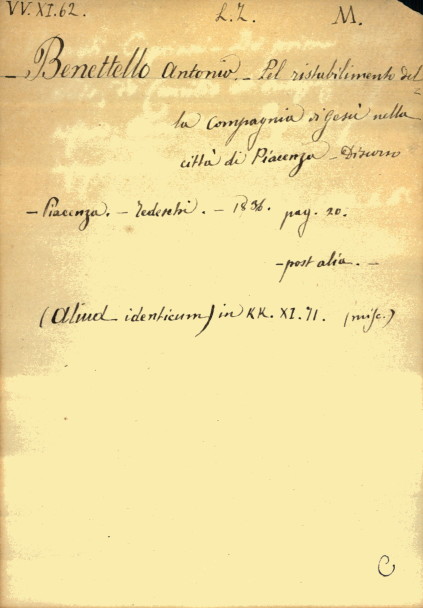 VV. XI. 62. L. Z. M.
— Benettello Antonio — Pel ristabilimento del-
la Compagnia di Gesù nella
città di Piacenza — Discorso
— Piacenza. — Tedeschi. — 1836. pag. 20.
— post alia. —
(Aliud identicum) in KK. XI. 71. (misc.)
C